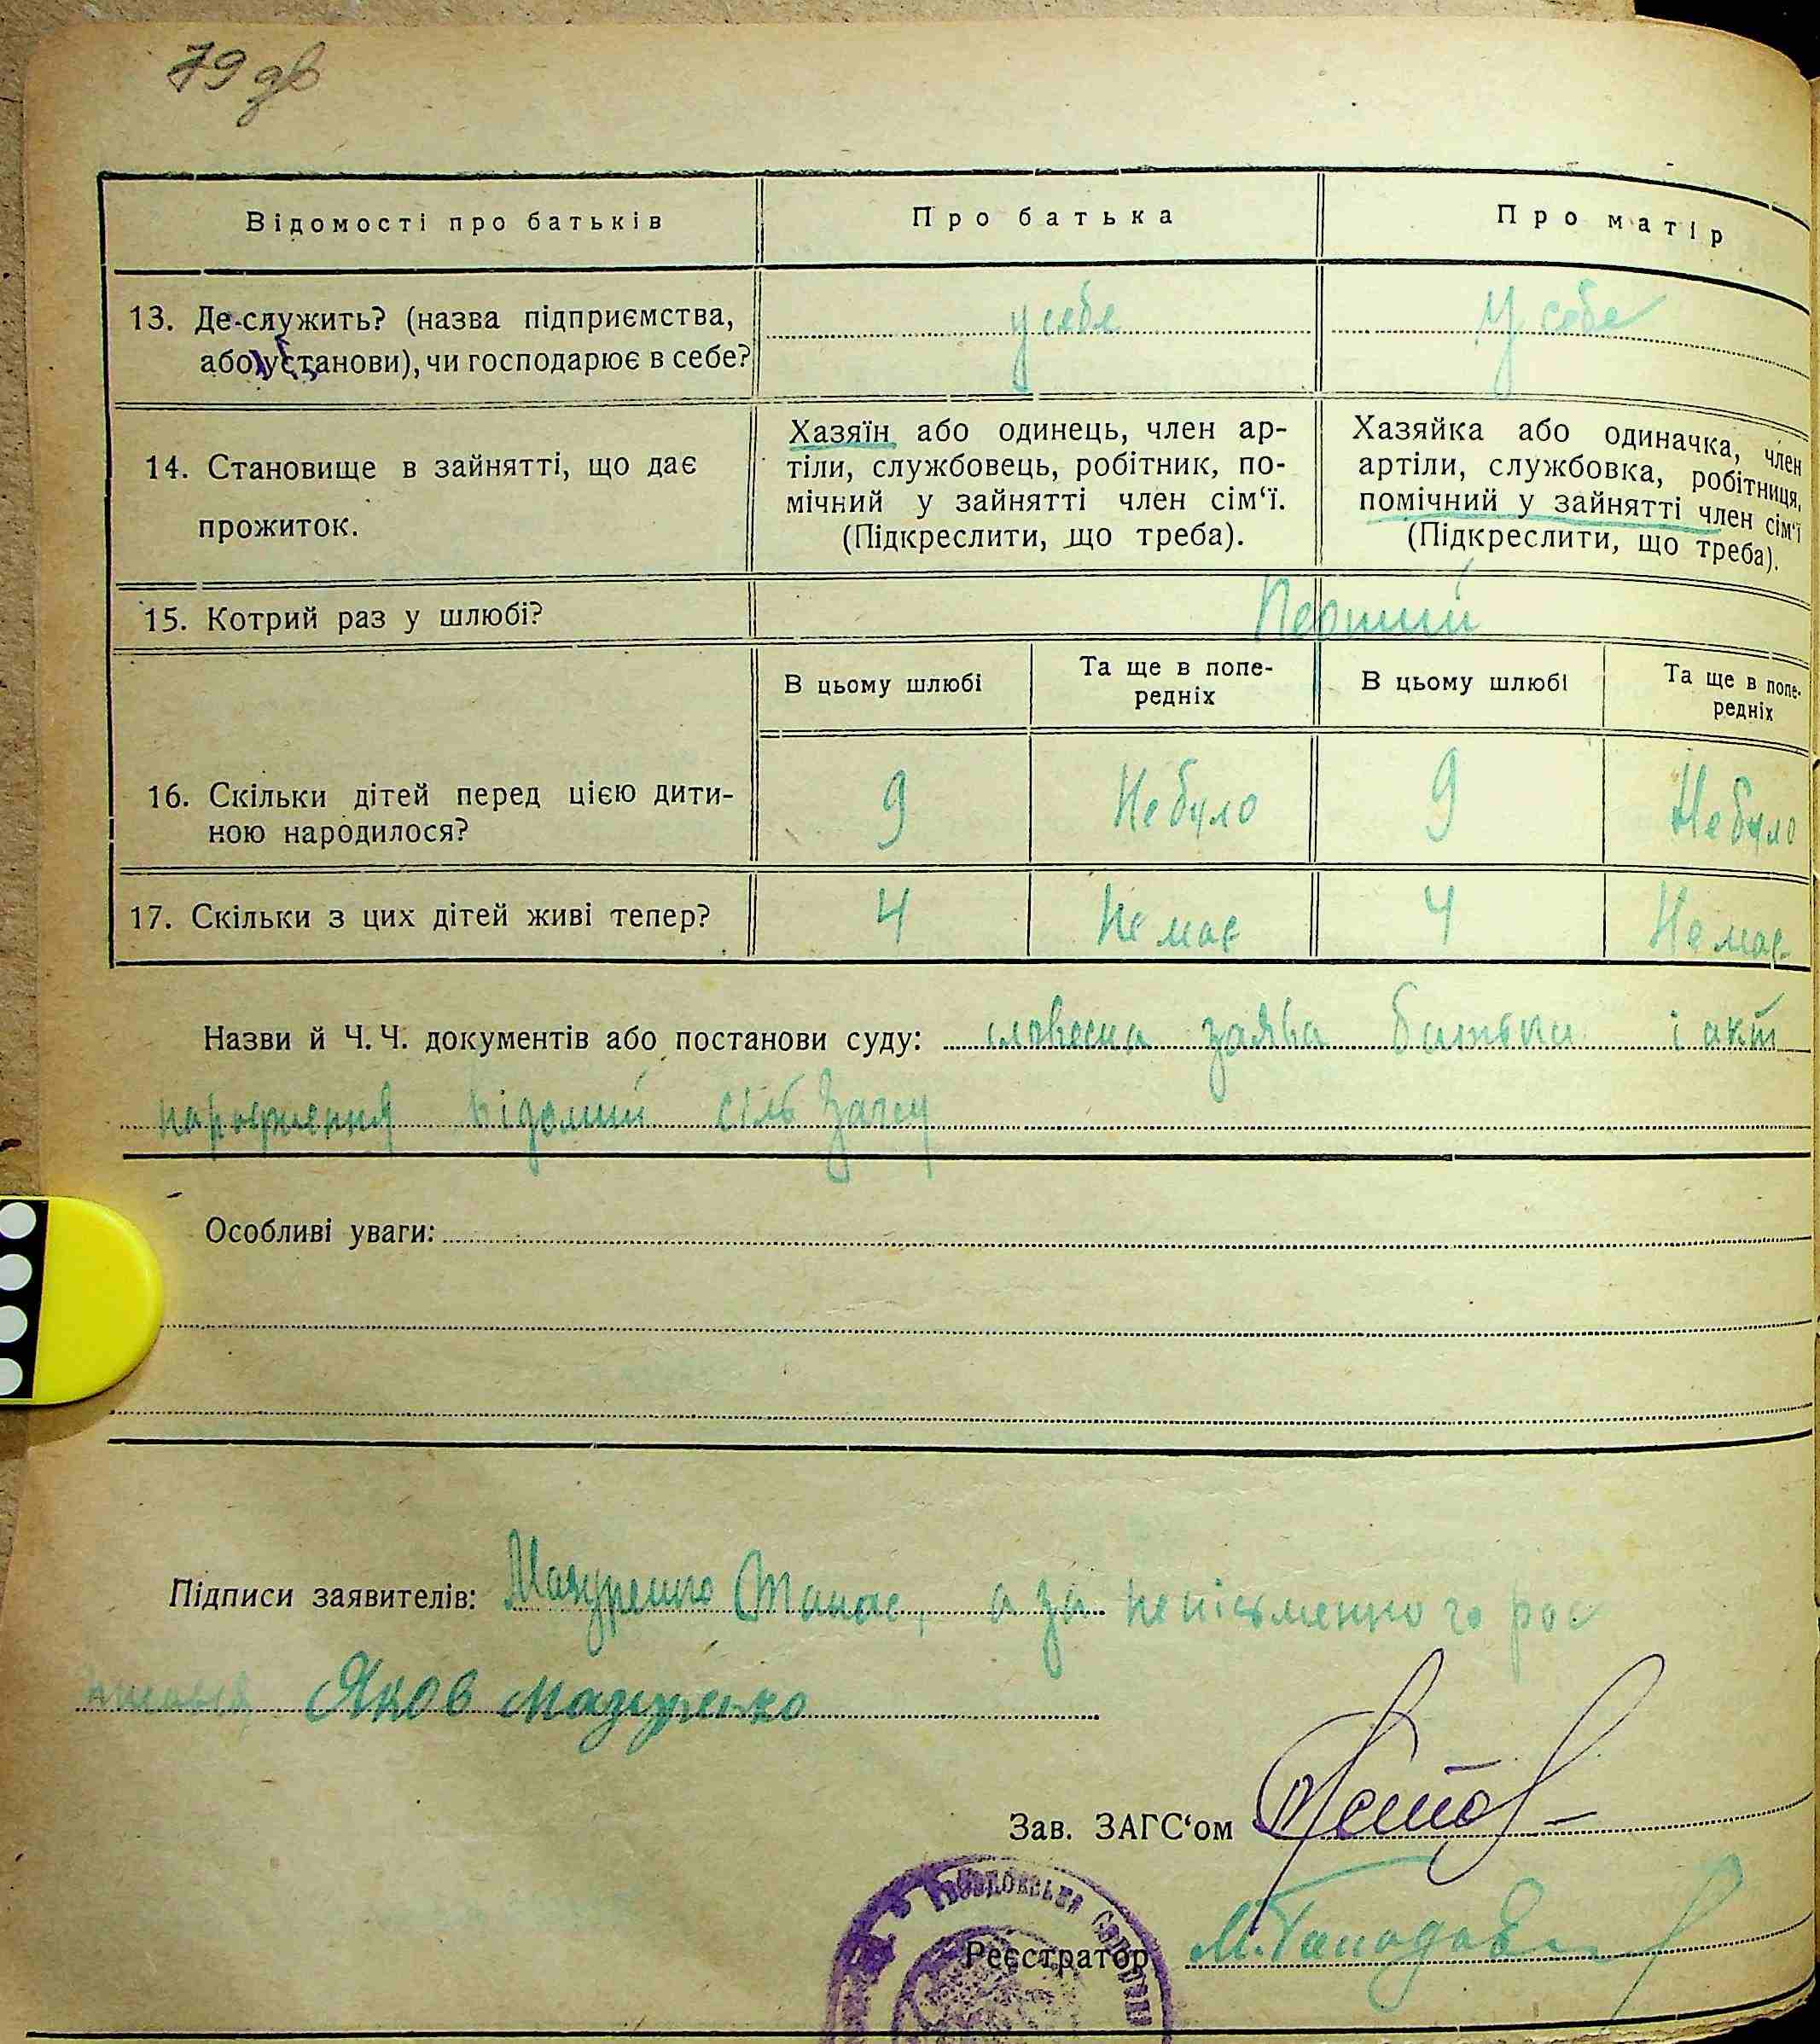 79 зв
Відомості про батьків
Про батька
Про матір
13. Де служить? (назва підприємства,
або установи), чи господарює в себе?
у себе
у себе
14. Становище в зайнятті, що дає
прожиток.
Хазяїн або одинець, член ар-
тіли, службовець, робітник, по-
мічний у зайнятті член сім‘ї.
(Підкреслити, що треба).
Хазяйка або одиначка, член
артіли, службовка, робітниця,
помічний у зайнятті член сім‘ї
(Підкреслити, що треба).
15. Котрий раз у шлюбі?
Перший
В цьому шлюбі
Та ще в попе-
редніх
В цьому шлюбі
Та ще в попе-
редніх
16. Скільки дітей перед цією дити-
ною народилося?
9
Не було
9
Не було
17. Скільки з цих дітей живі тепер?
4
Не має
4
Не має
Назви й Ч. Ч. документів або постанови суду: словесна заява батька і акт
народження відомий сіль Загсу
Особливі уваги:
Підписи заявителів: Мазуренко Танас, а за неписьменного рос
писався Яков Мазуренко
Зав. ЗАГС‘ом
Реєстратор М.